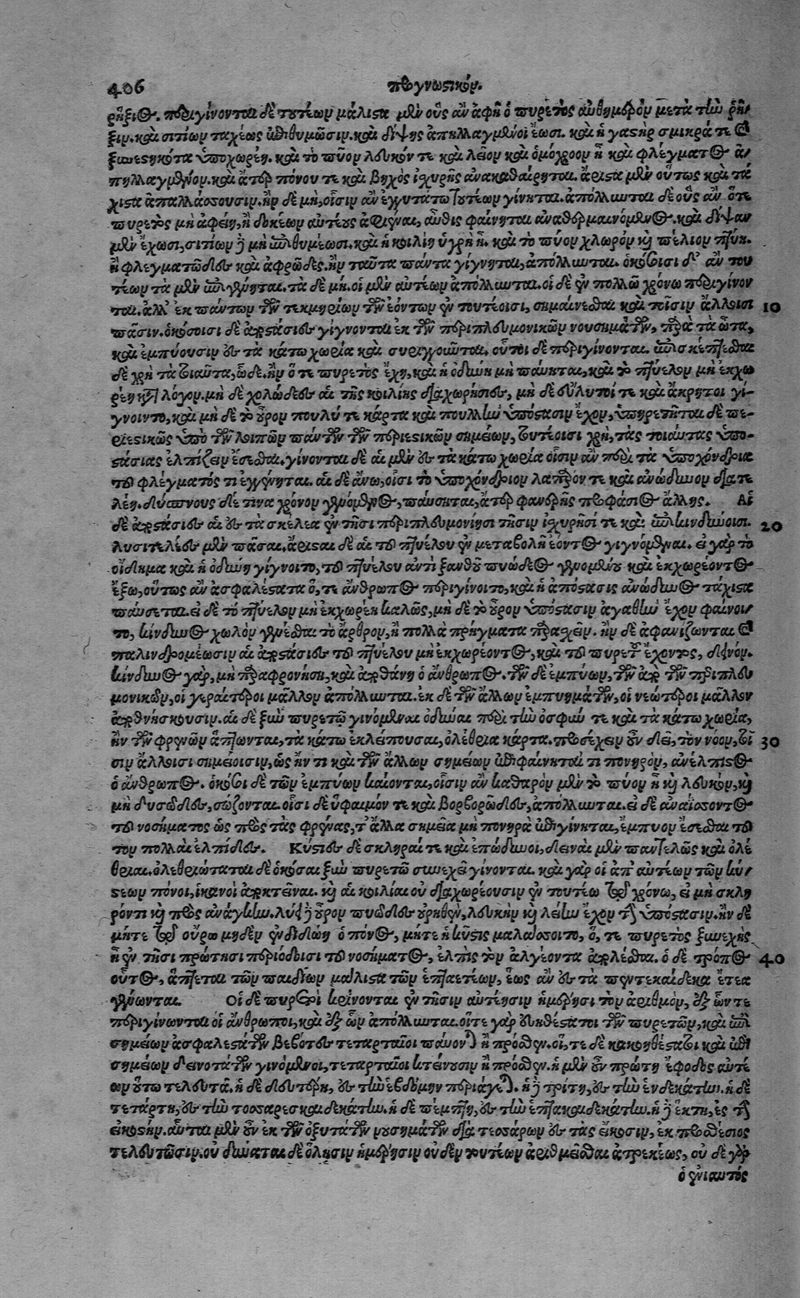 406 προγνωστικόν.
ρῆξιος. περιγίνονται δὲ τουτέων μάλιστα μὲν οὓς ἂν ἀφῇ ὁ πυρετὸς αὐθημερὸν μετὰ τὴν ῥῆ-
ξιν. καὶ σιτίων ταχέως ἐπιθυμῶσιν. καὶ δίψης ἀπηλλαγμένοι ἔωσι. καὶ ἡ γαστὴρ σμικρά τε καὶ
ξυνεστηκότα ὑποχωρέῃ. καὶ τὸ πῦον λευκόν τε καὶ λεῖον καὶ ὁμόχροον ᾖ καὶ φλέγματος ἀ-
πηλλαγμένον. καὶ ἄτερ πόνου τε καὶ βηχὸς ἰσχυρῆς ἀνακαθαίρηται. ἄριστα μὲν οὕτως καὶ τά-
χιστα ἀπαλλάσσουσιν. ἢν δὲ μὴ, οἷσιν ἂν ἐγγυτάτω τουτέων γίνηται. ἀπόλλυνται δὲ οὓς ἂν ὅ τε
πυρετὸς μὴ ἀφέῃ, ἢ δοκέων αὐτέους ἀφιέναι, αὖθις φαίνηται ἀναθερμαινόμενος. καὶ δίψαν
μὲν ἔχωσι, σιτίων δὲ μὴ ἐπιθυμέωσι. καὶ ἡ κοιλίη ὑγρὴ ᾖ. καὶ τὸ πῦον χλωρὸν καὶ πέλιον πτύῃ.
ἢ φλεγματῶδες καὶ ἀφρῶδες. ἢν ταῦτα πάντα γίγνηται, ἀπόλλυνται. ὁκόσοισι δ' ἂν του-
τέων τὰ μὲν ἐπιγένηται. τὰ δὲ μὴ. οἱ μὲν αὐτέων ἀπόλλυνται. οἱ δὲ ἐν πολλῷ χρόνῳ περιγίνον-
ται. ἀλλ' ἐκ πάντων τῶν τεκμηρίων τῶν ἐόντων ἐν τουτέοισι, σημαίνεσθαι καὶ τοῖσιν ἄλλοισι 10
πᾶσιν. ὁκόσοισι δὲ ἀποστάσιες γίγνονται ἐκ τῶν περιπλευμονικῶν νουσημάτων, παρὰ τὰ ὦτα,
καὶ ἐκπύουσιν ἐς τὰ κάτω χωρία καὶ συριγγοῦνται. οὗτοι δὲ περιγίνονται. ἐπισκέπτεσθαι
δὲ χρὴ τὰ τοιαῦτα, ὧδε. ἢν ὅ τε πυρετὸς ἔχῃ, καὶ ἡ ὀδύνη μὴ πέπαυται, καὶ τὸ πτύελον μὴ ἐκχω-
ρέῃ κατὰ λόγον. μὴ δὲ χολώδεες αἱ τῆς κοιλίης διαχωρήσιες, μὴ δὲ εὔλυτοί τε καὶ ἄκρητοι γί-
γνοιντο, καὶ μὴ δὲ τὸ οὖρον πουλύ τε κάρτα καὶ πουλλὴν ὑπόστασιν ἔχον, ὑπηρετῆται δὲ πε-
ριεστικῶς ὑπὸ τῶν λοιπῶν πάντων τῶν περιεστικῶν σημείων, τουτέοισι χρὴ, τὰς τοιαύτας ἀπο-
στάσιας ἐλπίζειν ἔσεσθαι. γίνονται δὲ αἱ μὲν ἐς τὰ κάτω χωρία οἷσιν ἂν περὶ τὰ ὑποχόνδρια
τοῦ φλέγματός τι ἐγγένηται. αἱ δὲ ἄνω, οἷσι τὸ ὑποχόνδριον λαπαρόν τε καὶ ἀνώδυνον διατε-
λέῃ. δύσπνους δέ τινα χρόνον γενόμενος, παύσηται, ἄτερ φανερῆς προφάσιος ἄλλης. Αἱ
δὲ ἀποστάσιες αἱ ἐς τὰ σκέλεα ἐν τῇσι περιπλευμονίῃσι τῇσιν ἰσχυρῇσί τε καὶ ἐπικινδύνοισι. 20
λυσιτελέες μὲν πᾶσαι. ἄρισται δὲ αἱ τοῦ πτυέλου ἐν μεταβολῇ ἐόντος γιγνόμεναι. εἰ γὰρ τὸ
οἴδημα καὶ ἡ ὀδύνη γίγνοιτο, τοῦ πτυέλου ἀντὶ ξανθοῦ πυώδεος γενομένου καὶ ἐκχωρέοντος
ἔξω, οὕτως ἂν ἀσφαλέστατα ὅ, τε ἄνθρωπος περιγίνοιτο, καὶ ἡ ἀπόστασις ἀνώδυνος τάχιστα
παύσεται. εἰ δὲ τὸ πτύελον μὴ ἐκχωρέῃ καλῶς, μὴ δὲ τὸ οὖρον ὑπόστασιν ἀγαθὴν ἔχον φαίνοι-
το, κίνδυνος χωλὸν γενέσθαι τὸ ἄρθρον, ἢ πολλὰ πρήγματα παρασχεῖν. ἢν δὲ ἀφανίζωνται καὶ
παλινδρομέωσιν αἱ ἀποστάσιες τοῦ πτυέλου μὴ ἐκχωρέοντος, καὶ τοῦ πυρετοῦ ἔχοντος, δεινόν.
κίνδυνος γὰρ, μὴ παραφρονήσῃ, καὶ ἀποθάνῃ ὁ ἄνθρωπος. τῶν δὲ ἐμπύων, τῶν ἀπὸ τῶν περιπλευ-
μονικῶν, οἱ γεραίτεροι μᾶλλον ἀπόλλυνται. ἐκ δὲ τῶν ἄλλων ἐμπυημάτων, οἱ νεώτεροι μᾶλλον
ἀποθνήσκουσιν. αἱ δὲ ξὺν πυρετῷ γινόμεναι ὀδύναι περὶ τὴν ὀσφύν τε καὶ τὰ κάτω χωρία,
ἢν τῶν φρενῶν ἅπτωνται, τὰ κάτω ἐκλείπουσαι, ὀλέθριαι κάρτα. προσέχειν οὖν δεῖ, τὸν νόον, τοῖ- 30
σιν ἄλλοισι σημείοισιν, ὡς ἤν τι καὶ τῶν ἄλλων σημείων ἐπιφαίνηταί τι πονηρὸν, ἀνέλπιστος
ὁ ἄνθρωπος. ὁκόσοι δὲ τῶν ἐμπύων καίονται, οἷσιν ἂν καθαρὸν μὲν τὸ πῦον ᾖ καὶ λευκὸν, καὶ
μὴ δυσῶδες, σώζονται. οἷσι δὲ ὕφαιμόν τε καὶ βορβορῶδες, ἀπόλλυνται. εἰ δὲ ἀναΐσσοντος
τοῦ νοσήματος ὡς πρὸς τὰς φρένας, τ' ἄλλα σημεῖα μὴ πονηρὰ ἐπιγίνηται, ἔμπυον ἔσεσθαι τοῦ-
τον πολλαὶ ἐλπίδες. Κύστιες δὲ σκληραί τε καὶ ἐπώδυνοι, δειναὶ μὲν παντελῶς καὶ ὀλέ-
θριαι. ὀλεθριώταται δὲ ὁκόσαι ξὺν πυρετῷ συνεχεῖ γίνονται. καὶ γὰρ οἱ ἀπ' αὐτέων τῶν κύ-
στεων πόνοι, ἱκανοὶ ἀποκτεῖναι. καὶ αἱ κοιλίαι οὐ διαχωρέουσιν ἐν τουτέῳ τῷ χρόνῳ, εἰ μὴ σκλη-
ρόν τι καὶ πρὸς ἀνάγκην. λύει δὲ οὖρον πυῶδες οὐρηθὲν, λευκὴν καὶ λείην ἔχον τὴν ὑπόστασιν. ἢν δὲ
μήτε τῷ οὔρῳ μηδὲν ἐνδιδῴη ὁ πόνος, μήτε ἡ κύστις μαλάσσοιτο, ὅ, τε πυρετὸς ξυνεχὴς
ᾖ ἐν τῇσι πρώτῃσι περιόδοισι τοῦ νοσήματος, ἐλπὶς τὸν ἀλγέοντα ἀπολέσθαι. ὁ δὲ τρόπος 40
οὗτος, ἅπτεται τῶν παιδίων μάλιστα τῶν ἑπταετέων, ἕως ἂν ἐς τὰ πεντεκαίδεκα ἔτεα
γένωνται. Οἱ δὲ πυρετοὶ κρίνονται ἐν τῇσιν αὐτέῃσιν ἡμέρῃσι τὸν ἀριθμὸν, ἐξ ὧν τε
περιγίνονται οἱ ἄνθρωποι, καὶ ἐξ ὧν ἀπόλλυνται. οἵτε γὰρ εὐηθέστατοι τῶν πυρετῶν, καὶ ἐπὶ
σημείων ἀσφαλεστάτων βεβῶτες τεταρταῖοι παύονται ἢ πρόσθεν. οἵ, τε δὲ κακοηθέστατοι καὶ ἐπὶ
σημείων δεινοτάτων γινόμενοι, τεταρταῖοι κτείνουσιν ἢ πρόσθεν. ἡ μὲν οὖν πρώτη ἔφοδος αὐτέ-
ων οὕτω τελευτᾷ. ἡ δὲ δευτέρη, ἐς τὴν ἑβδόμην περιάγεται. ἡ δὲ τρίτη, ἐς τὴν ἑνδεκάτην. ἡ δὲ
τετάρτη, ἐς τὴν τεσσαρεσκαιδεκάτην. ἡ δὲ πέμπτη, ἐς τὴν ἑπτακαιδεκάτην. ἡ δὲ ἕκτη, ἐς τὴν
εἰκοστήν. αὗται μὲν οὖν ἐκ τῶν ὀξυτάτων νουσημάτων διὰ τεσσάρων ἐς τὰς εἴκοσιν, ἐκ προσθέσιος
τελευτῶσιν. οὐ δύναται δὲ ὅλῃσιν ἡμέρῃσιν οὐδὲν τουτέων ἀριθμεῖσθαι ἀτρεκέως, οὐ δὲ γὰρ
ὁ ἐνιαυτός